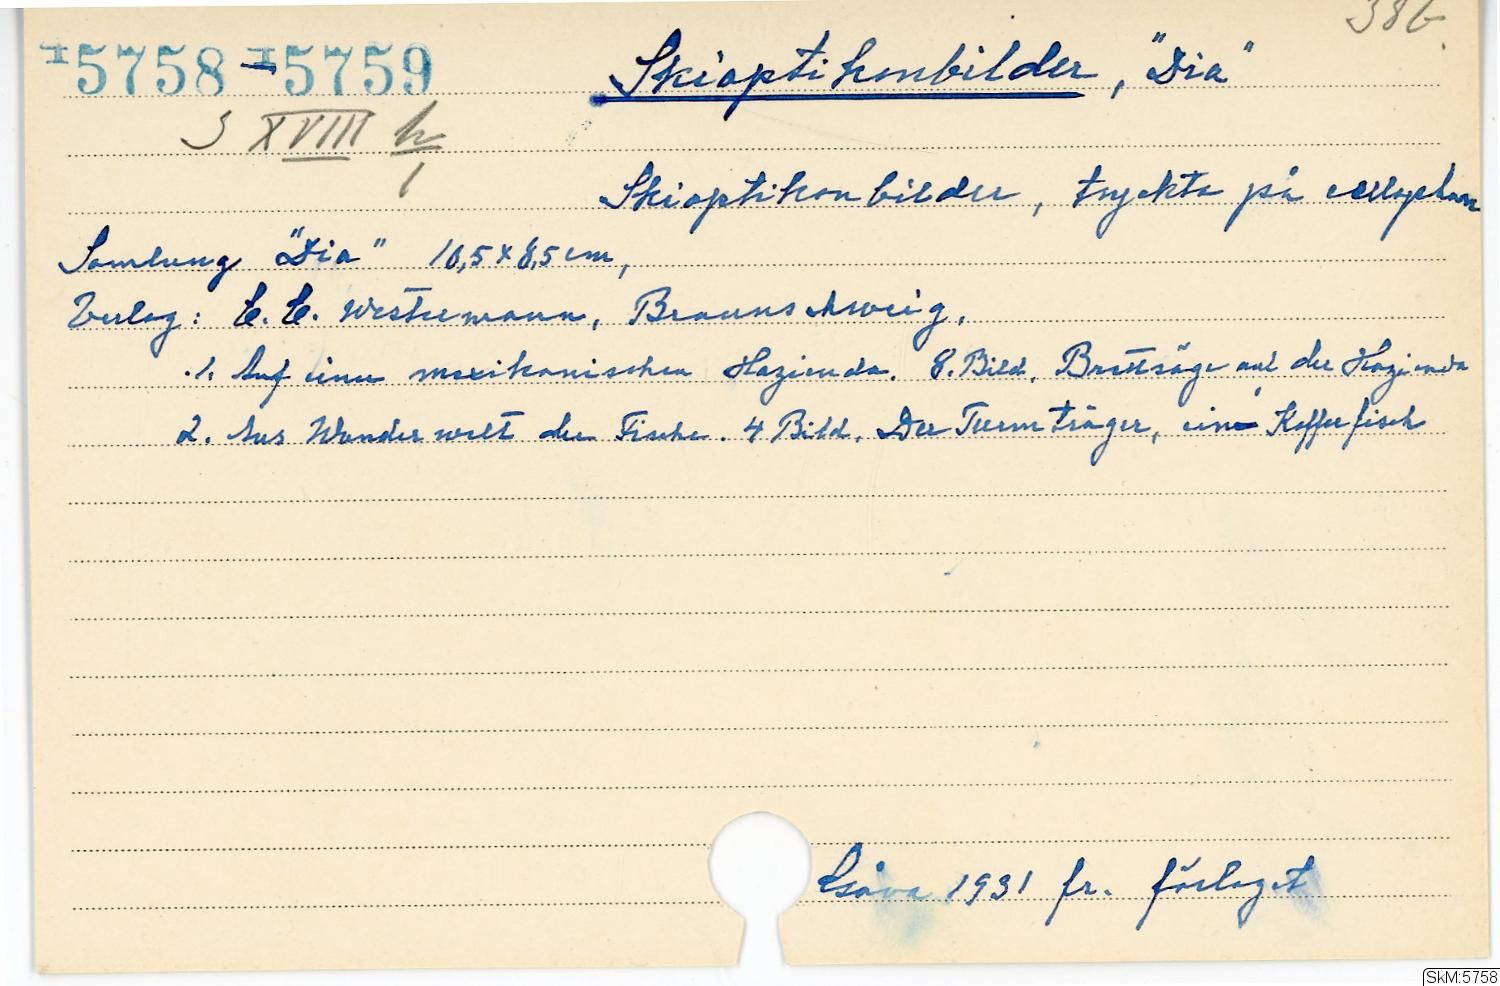 38b.
I5758-I5759 Skioptikonbilder, "Dia"
S XVIII h
1
Skioptikonbilder, tryckta på cellophan
Samlung "Dia" 10,5 x 8,5 cm,
Verlag: E. E. Westermann, Braunschweig,
1. Auf einer mexikanischen Hazienda. 8. Bild. Brettsäge auf der Hazienda
2. Aus Wunderwelt der Fische. 4 Bild. Der Turmträger, ein Kofferfisch
Gåva 1931 fr. förlaget
SkM:5758